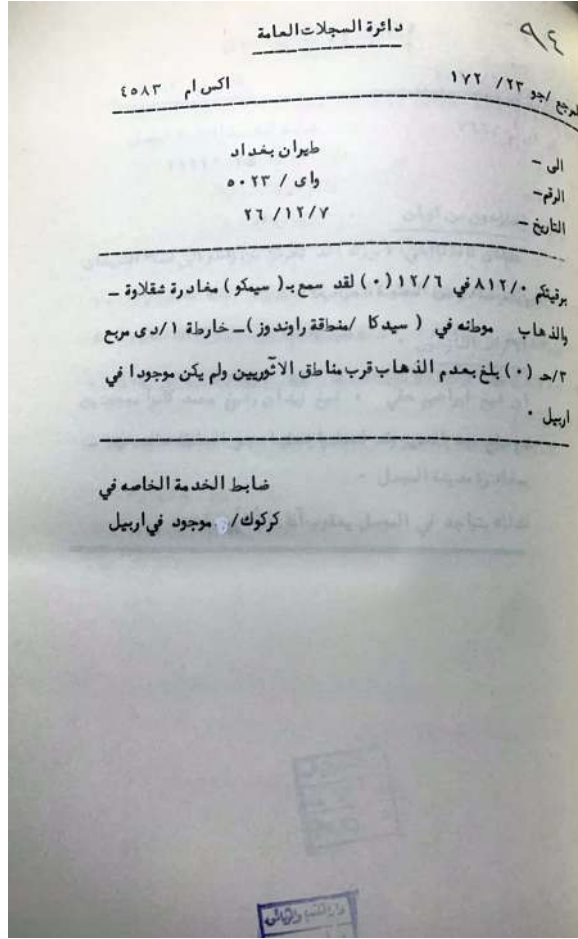 ٩٤
دائرة السجلات العامة
المرجع /جو ٢٣/ ١٧٢ اكس ام ٤٥٨٣
الى - طيران بغداد
الرقم- واى / ٥٠٢٣
التاريخ - ٢٦/١٢/٧
برقيتكم ٨١٢/٠ في ١٢/٦ (٠) لقد سمع بـ( سيمكو ) مغادرة شقلاوة -
والذهاب موطانه في ( سيدكا /منطقة راوندوز )- خارطة ١/دى مربع
٣/حـ (٠) بلغ بعدم الذهاب قرب مناطق الاثوريين ولم يكن موجودا في
اربيل ٠
ضابط الخدمة الخاصه في
كركوك/ موجود في اربيل
دار الكتب والوثائق